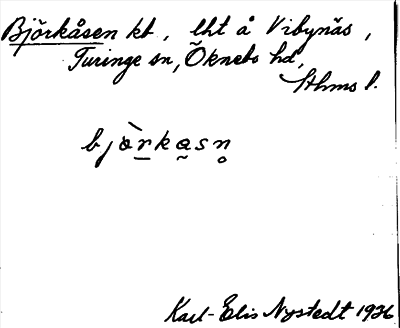 Björkåsen kb, lht å Vibynäs,
Turinge sn, Öknebo hd,
Sthms l.
bjò̱rka̰sn̥
Karl-Elis Nystedt 1936